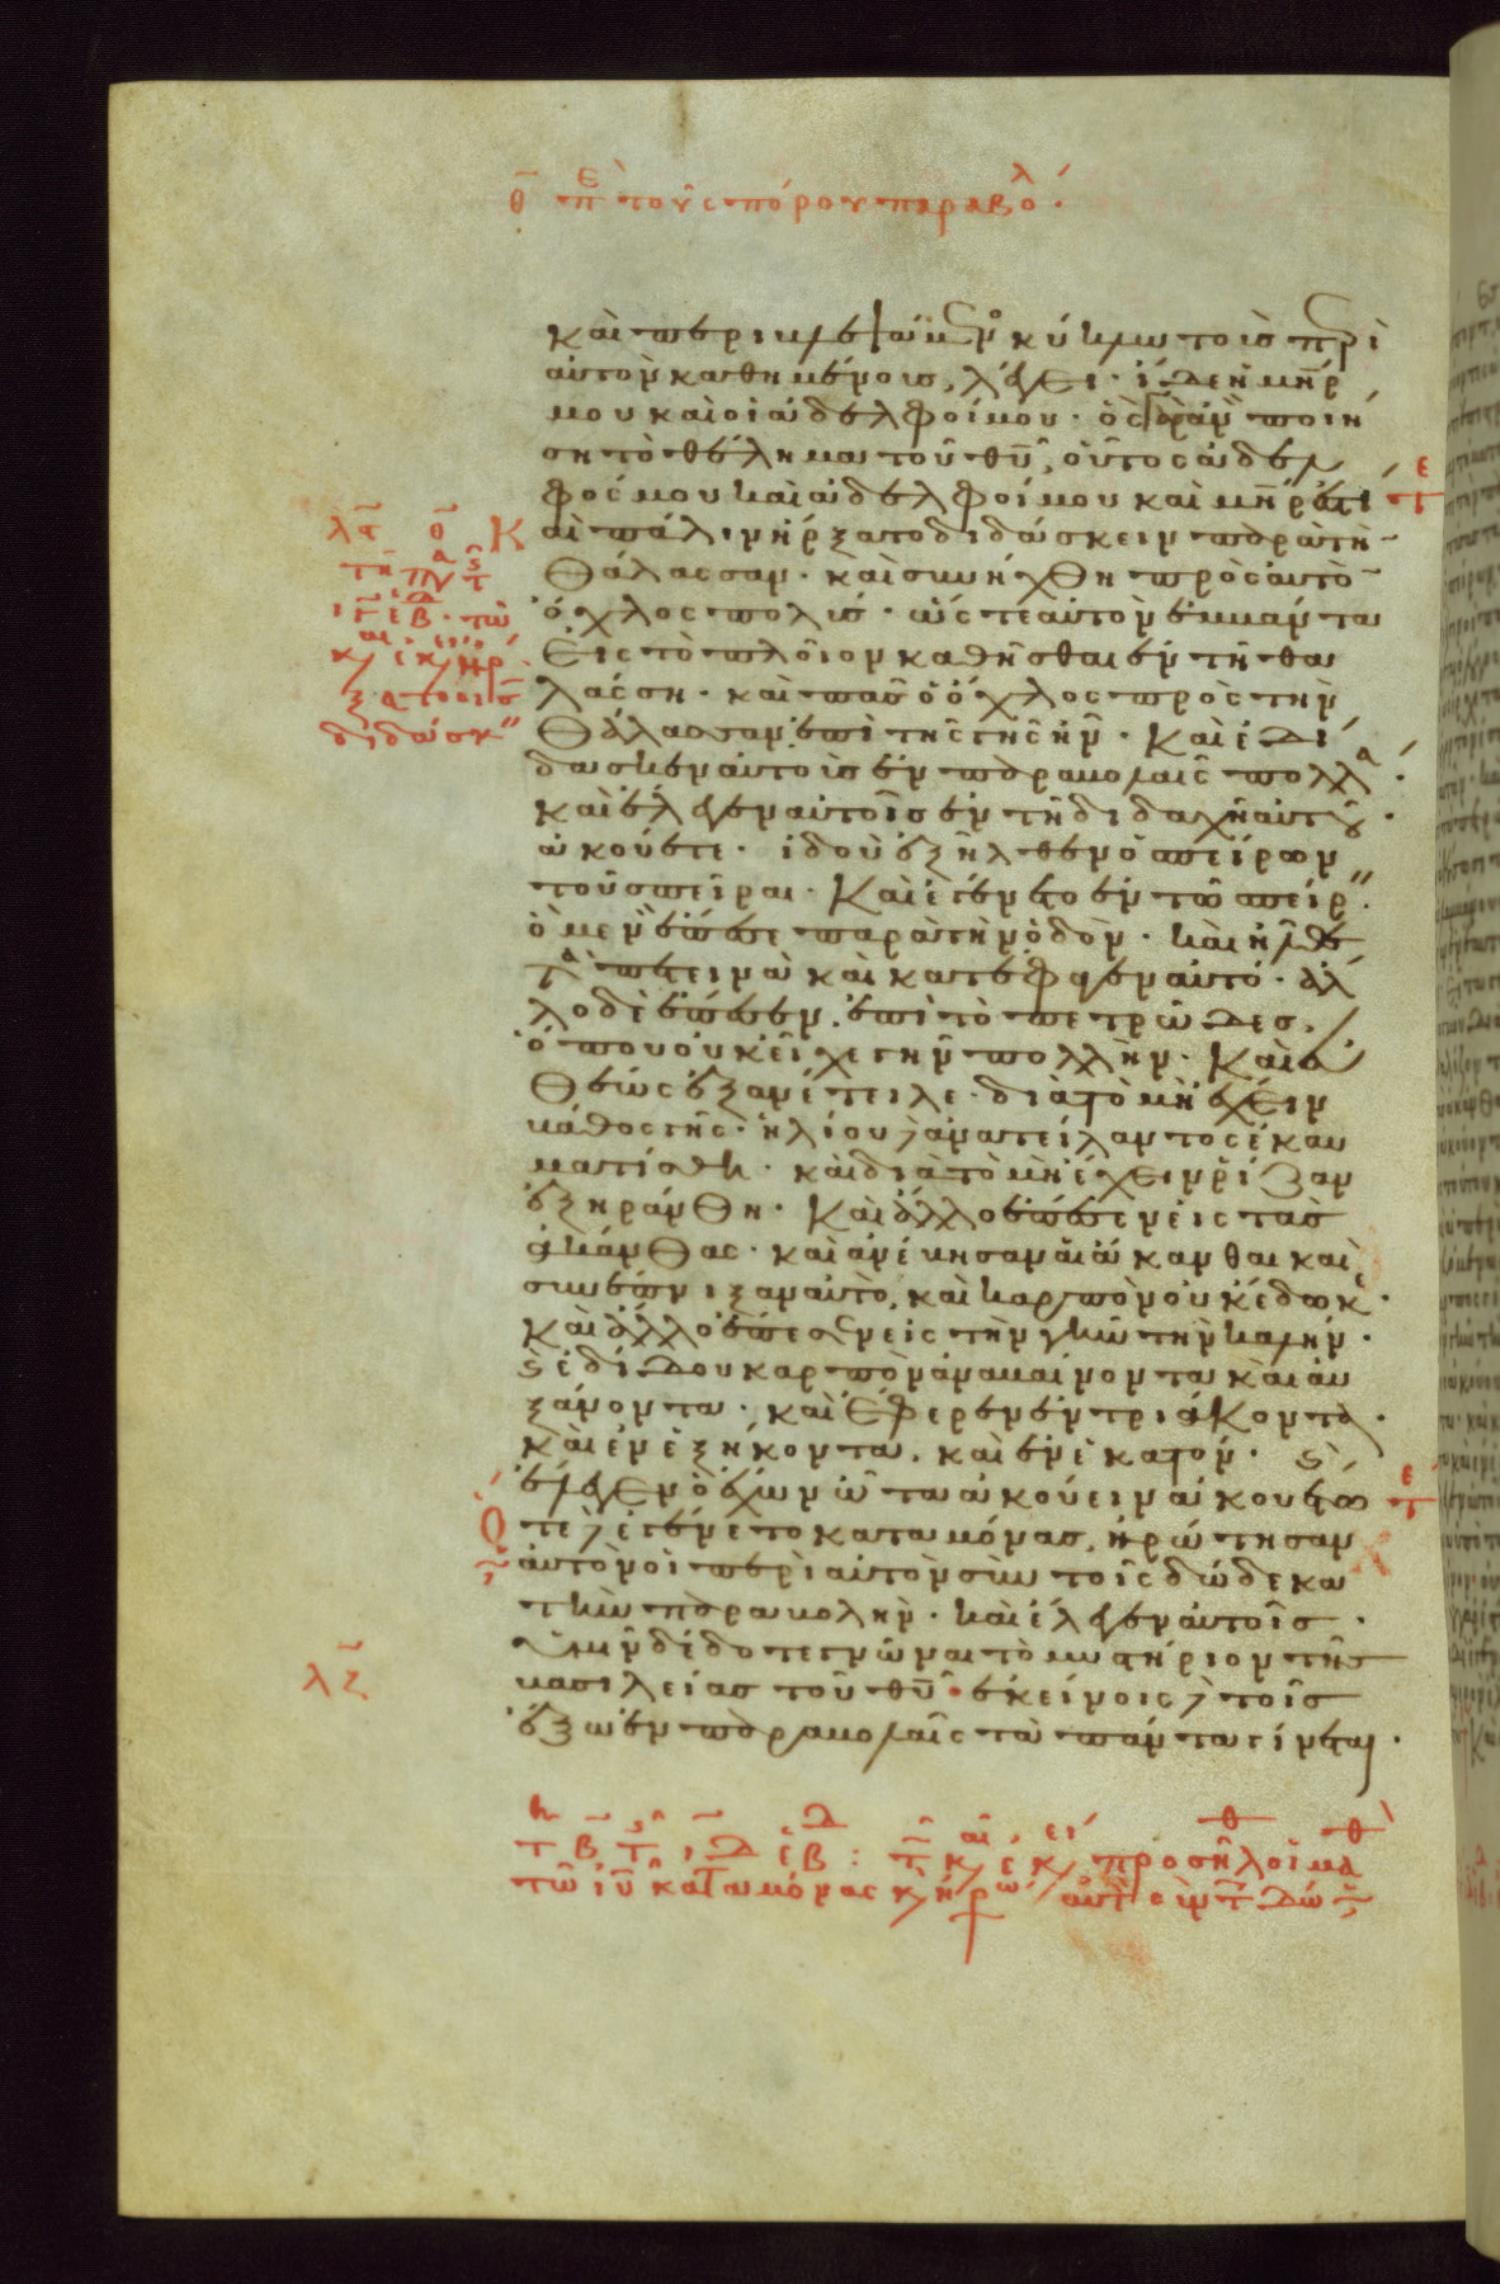 θ̄ πε τοῦ σπόρου παραβολ
καὶ περιβλεψάμενος κύκλω τοὺς περὶ
αὐτὸν καθημένους, λέγει· ἴδε ἡ μη̅ρ
μου καὶ οἱ ἀδελφοί μου· ὃς γὰρ ἂν ποιή
ση τὸ θέλημα τοῦ θυ̅, οὗτος ἀδελ
φός μου καὶ ἀδελφοί μου καὶ μη̅ρ ἐστί
Καὶ πάλιν ἤρξατο διδάσκειν παρὰ τὴν
θάλασσαν· καὶ συνήχθη πρὸς αὐτὸ̅
ὄχλος πολύς· ὥστε αὐτὸν ἐμβάντα
εἰς τὸ πλοῖον καθῆσθαι ἐν τῆ θα
λάσση· καὶ πᾶς ὁ ὄχλος πρὸς τὴν
θάλασσαν ἐπὶ τῆς γῆς ἦν· Καὶ ἐδί
δασκεν αὐτοὺς ἐν παραβολαῖς πολλά·
καὶ ἔλεγεν αὐτοῖς ἐν τῆ διδαχῆ αὐτοῦ·
ἀκούετε· ἰδοὺ ἐξῆλθεν ὁ σπείρων
τοῦ σπεῖραι· Καὶ ἐγένετο ἐν τῶ σπείρ·
ὃ μὲν ἔπεσε παρὰ τὴν ὁδὸν· καὶ ἦλθε
τὰ πετεινὰ καὶ κατέφαγεν αὐτό· ἄλ
λο δὲ ἔπεσεν ἐπὶ τὸ πετρῶδες,
ὅπου οὐκ εἶχε γῆν πολλήν· Καὶ εὐ
θέως ἐξανέτειλε· διὰ τὸ μὴ ἔχειν
βάθος γῆς· ἡλίου δὲ ἀνατείλαντος ἐκαυ
ματίσθη· καὶ διὰ τὸ μὴ ἔχειν ῥίζαν
ἐξηράνθη· Καὶ ἄλλο ἔπεσεν εἰς τὰς
ἀκάνθας· καὶ ἀνέβησαν αἱ ἄκανθαι καὶ
συνέπνιξαν αὐτὸ, καὶ καρπὸν οὐκ ἔδωκε·
Καὶ ἄλλο ἔπεσεν εἰς τὴν γῆν τὴν καλήν·
ϗ ἐδίδου καρπὸν ἀναβαίνοντα καὶ αὐ
ξάνοντα· καὶ ἔφερεν ἐν τριάκοντα·
καὶ ἐν ἑξήκοντα, καὶ ἐν ἑκατόν· ϗ
ἔλεγεν ὁ ἔχων ὦτα ἀκούειν ἀκουέτω
Ὅτε δὲ ἐγένετο καταμόνας, ἠρώτησαν
αὐτὸν οἱ περὶ αὐτὸν σὺν τοῖς δώδεκα
τὴν παραβολήν· καὶ ἔλεγεν αὐτοῖς·
ὑμῖν δέδοται γνῶναι τὸ μυστήριον τῆς
βασιλείας τοῦ θυ̅· ἐκείνοις δὲ τοῖς
ἔξω ἐν παραβολαῖς τὰ πάντα γίνεται·
λζ̅